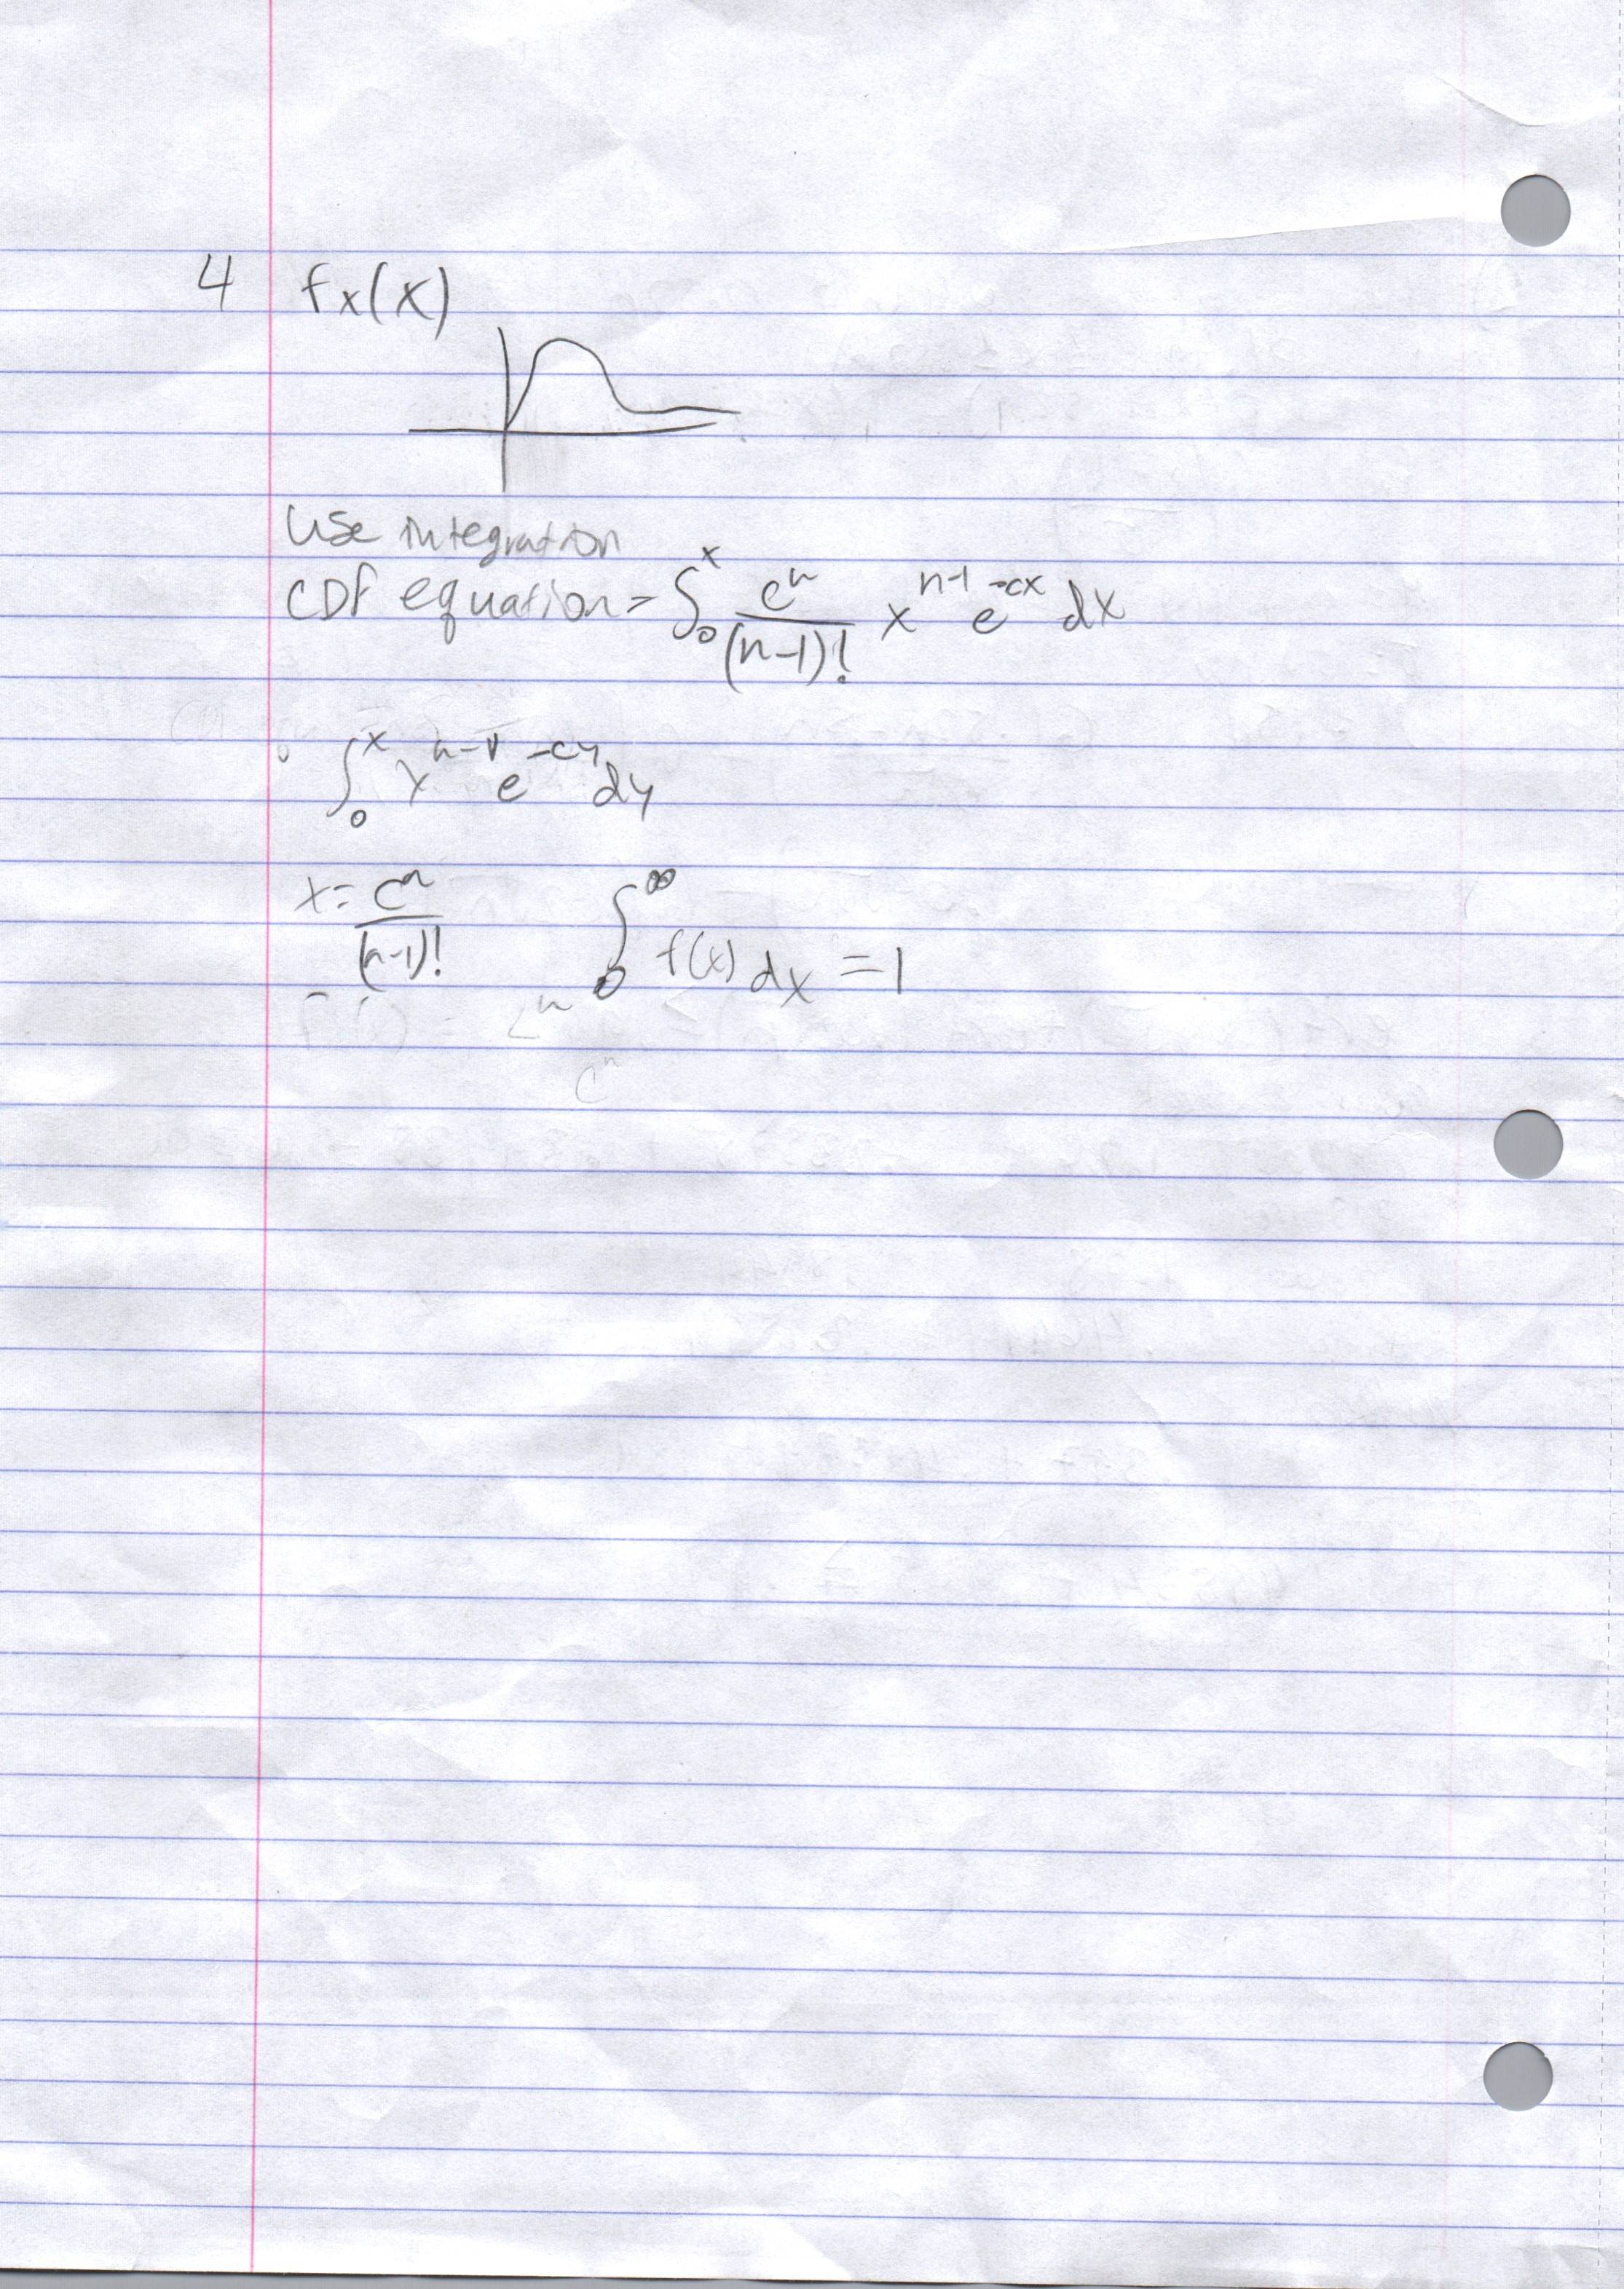 4 fx(x)
Use integration
CDF equation = ∫₀ˣ cⁿ/(n-1)! xⁿ⁻¹ e⁻ᶜˣ dx
∫₀ˣ xⁿ⁻¹ e^(-cy) dy
x = cⁿ/(n-1)! ∫₀^∞ f(x) dx = 1
cⁿ